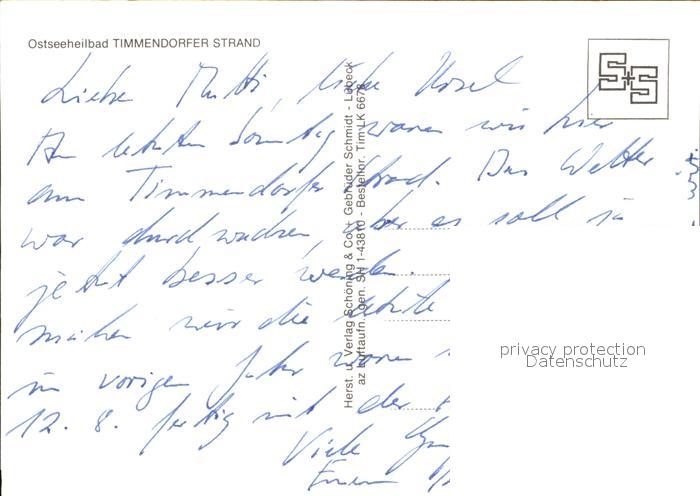 Ostseeheilbad TIMMENDORFER STRAND
S+S
Liebe Mutti, liebe Ursel
Am letzten Sonntag waren wir hier
am Timmendorfer Strand. Das Wetter
war durchwachsen, aber es soll ja
jetzt besser werden.
machen wir die letzte
im vorigen Jahr waren
12. 8. fertig mit der
Viele
Herst. u. Verlag Schöning & Co. + Gebrüder Schmidt - Lübeck
az Luftaufn. Gen. SH 1-43810 - Bestellnr. Tim LK 6678
privacy protection
Datenschutz